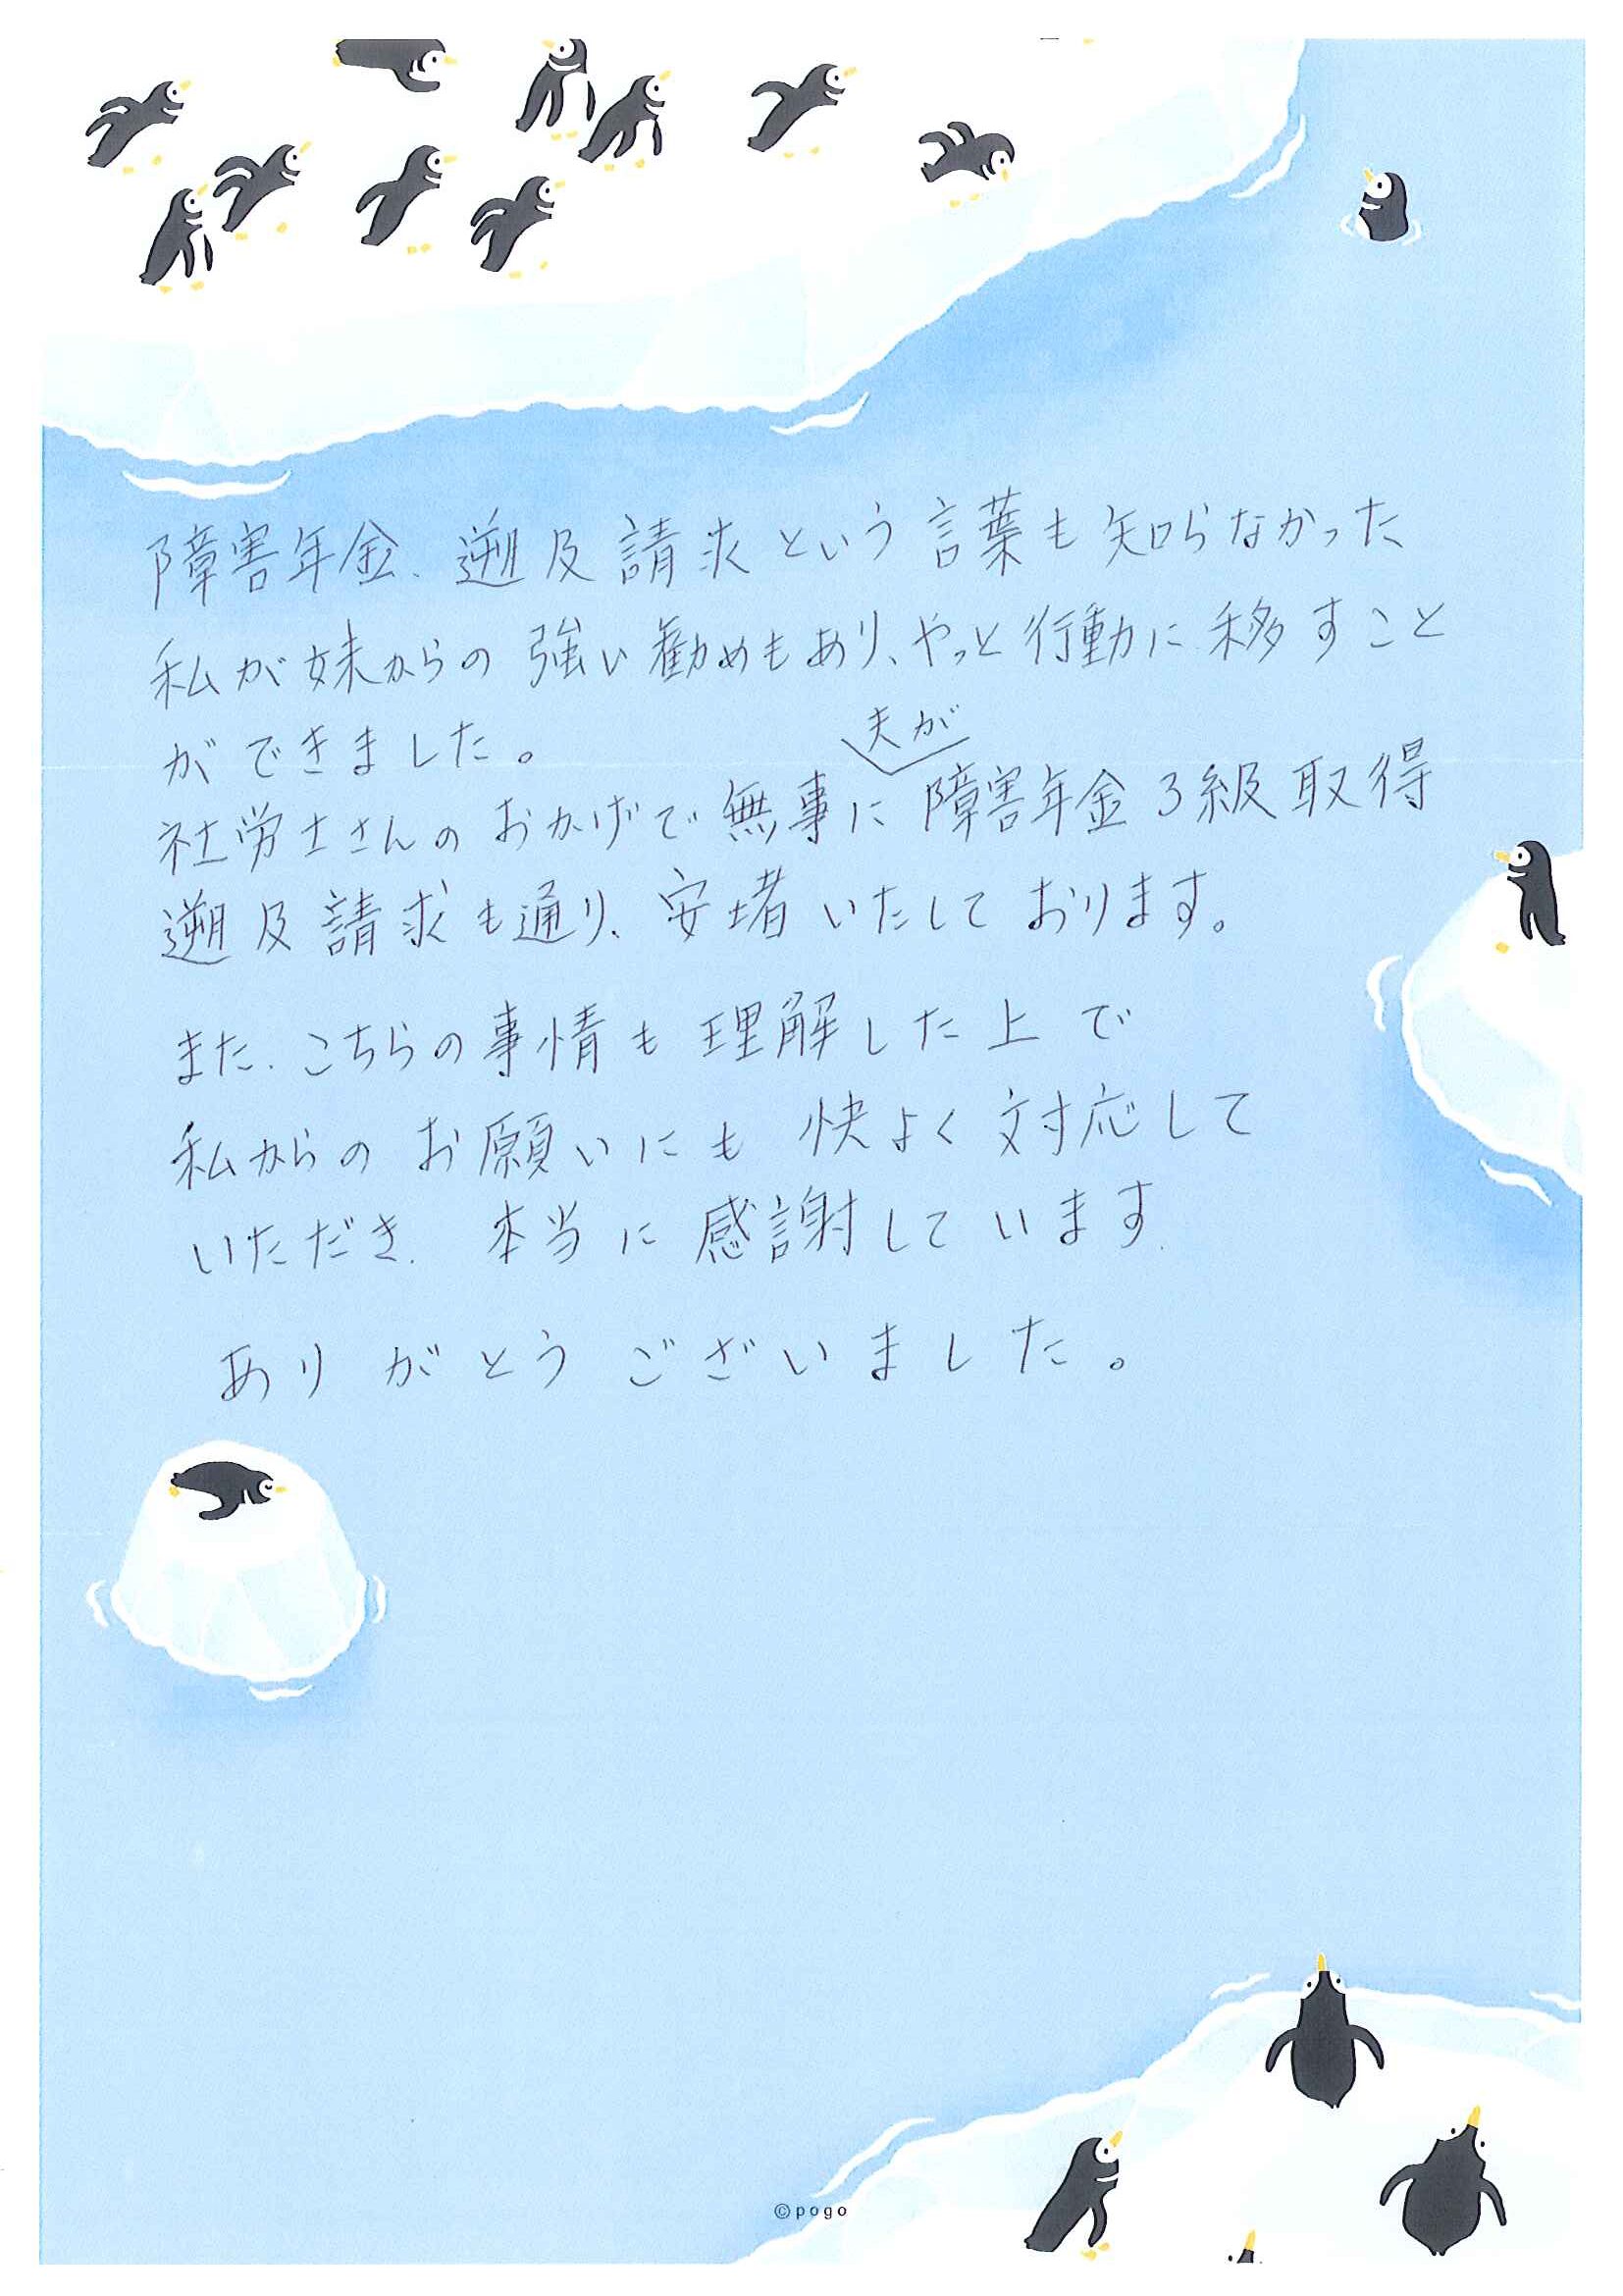 障害年金、遡及請求という言葉も知らなかった
私が妹からの強い勧めもあり、やっと行動に移すこと
ができました。
夫が
社労士さんのおかげで無事に障害年金3級取得
遡及請求も通り、安堵いたしております。
また、こちらの事情も理解した上で
私からのお願いにも快よく対応して
いただき、本当に感謝しています。
ありがとうございました。
©pogo